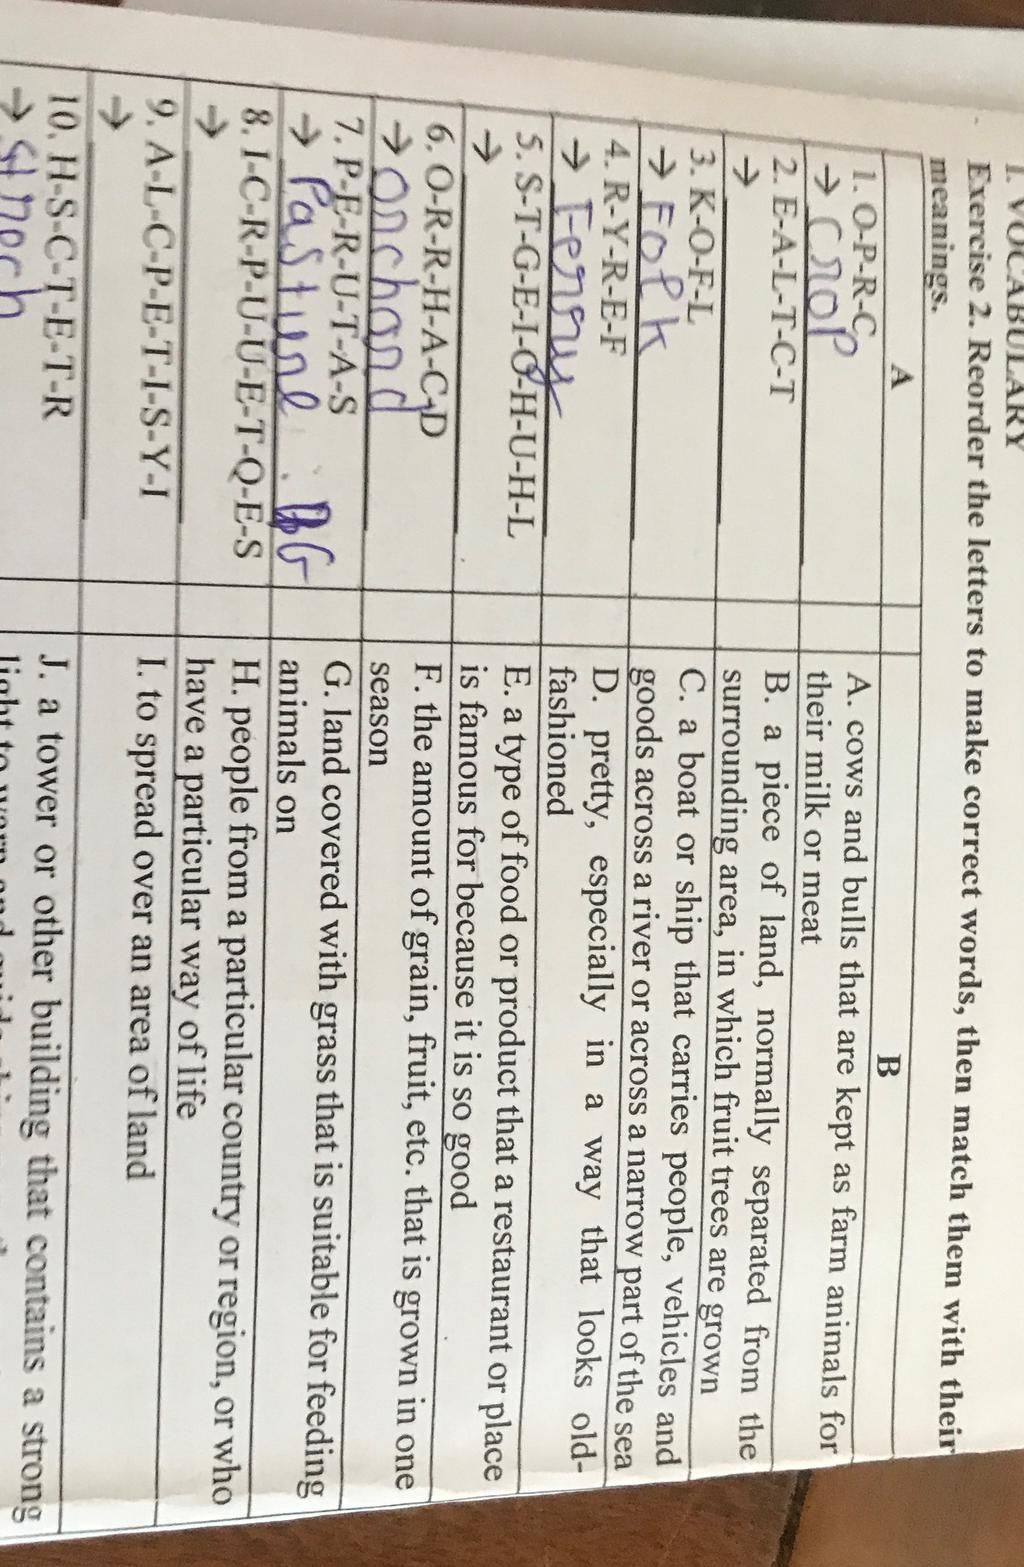 I. VOCABULARY
Exercise 2. Reorder the letters to make correct words, then match them with their
meanings.
A
B
1. O-P-R-C
→ Crop
A. cows and bulls that are kept as farm animals for
their milk or meat
2. E-A-L-T-C-T
→
B. a piece of land, normally separated from the
surrounding area, in which fruit trees are grown
3. K-O-F-L
→ Folk
C. a boat or ship that carries people, vehicles and
goods across a river or across a narrow part of the sea
4. R-Y-R-E-F
→ Ferry
D. pretty, especially in a way that looks old-
fashioned
5. S-T-G-E-I-O-H-U-H-L
→
E. a type of food or product that a restaurant or place
is famous for because it is so good
6. O-R-R-H-A-C-D
→ orchard
F. the amount of grain, fruit, etc. that is grown in one
season
7. P-E-R-U-T-A-S
→ Pasture G
G. land covered with grass that is suitable for feeding
animals on
8. I-C-R-P-U-U-E-T-Q-E-S
→
H. people from a particular country or region, or who
have a particular way of life
9. A-L-C-P-E-T-I-S-Y-I
→
I. to spread over an area of land
10. H-S-C-T-E-T-R
→
J. a tower or other building that contains a strong
light to warn and guide